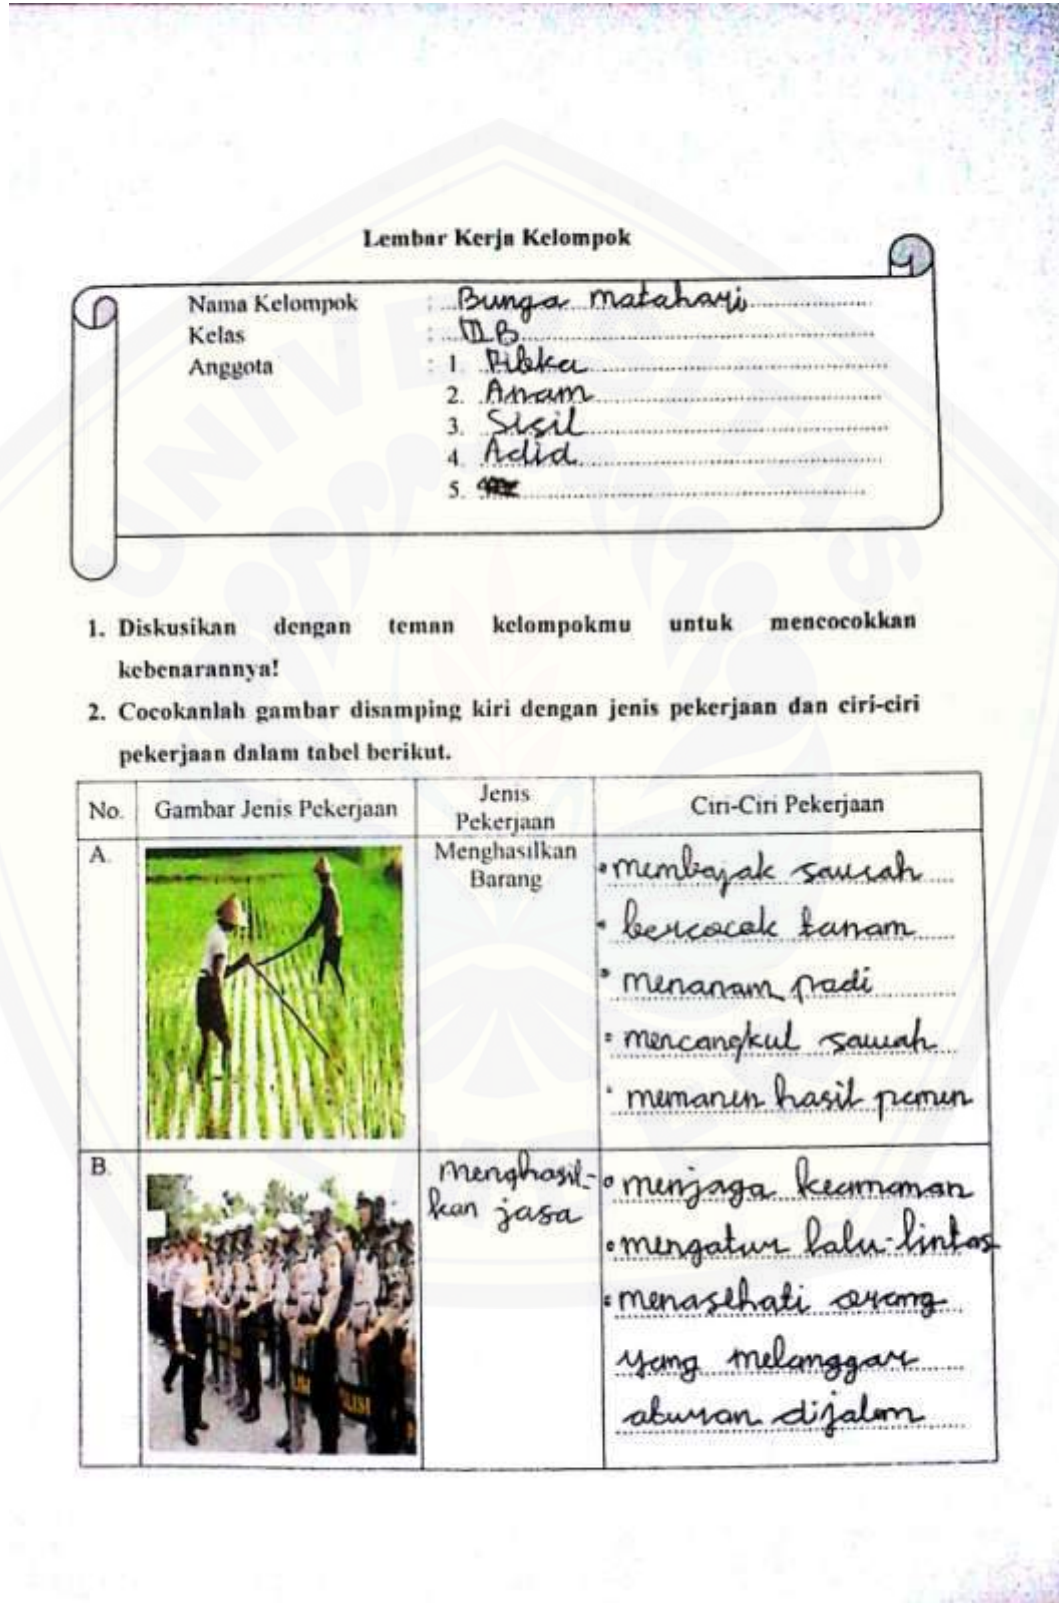 Lembar Kerja Kelompok
Nama Kelompok : Bunga matahari
Kelas : III B
Anggota : 1. Ribka
2. Anam
3. Sisil
4. Adid
5.
1. Diskusikan dengan teman kelompokmu untuk mencocokkan
kebenarannya!
2. Cocokanlah gambar disamping kiri dengan jenis pekerjaan dan ciri-ciri
pekerjaan dalam tabel berikut.
No. Gambar Jenis Pekerjaan Jenis Pekerjaan Ciri-Ciri Pekerjaan
A. Menghasilkan
Barang
• membajak sawah
• bercocok tanam
• menanam padi
• mencangkul sawah
• memanen hasil pemen
B. menghasil-
kan jasa
• menjaga keamanan
• mengatur lalu-lintas
• menasehati orang
yang melanggar
aturan dijalan
POLISI
UNIVERSITAS